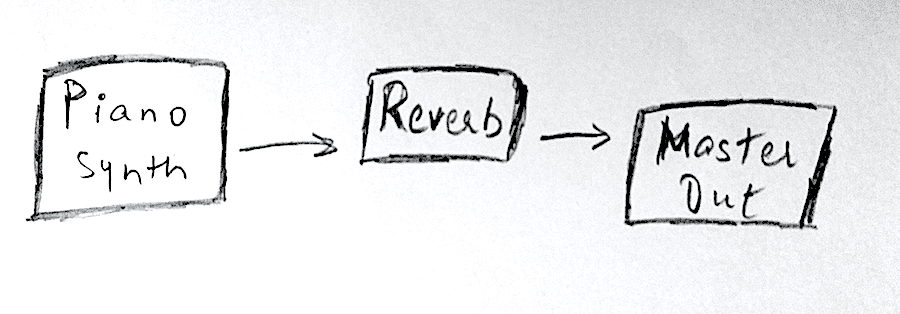 Piano
Synth
Reverb
Master
Out